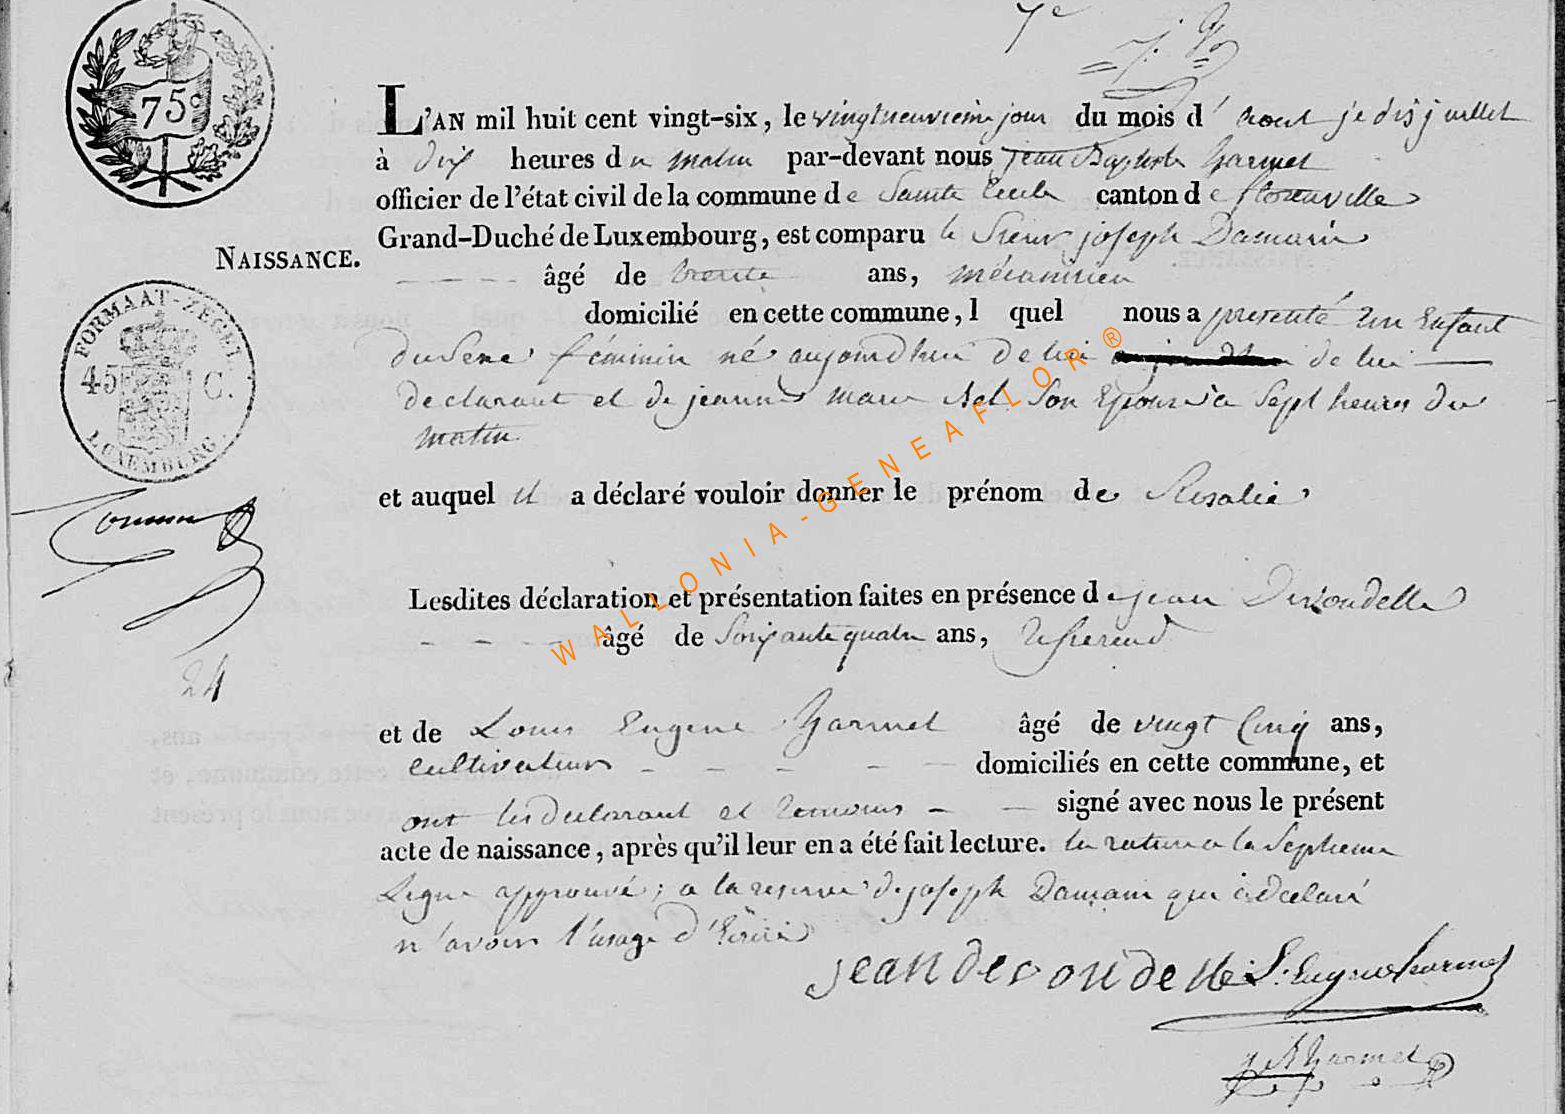 7e
75c
L'AN mil huit cent vingt-six, le vingtneuvieme jour du mois d' aout je dis juillet
à dix heures du matin par-devant nous jean Baptiste harmel
officier de l'état civil de la commune de Sainte Cecile canton de florenville
Grand-Duché de Luxembourg, est comparu le Sieur joseph Damain
NAISSANCE.
âgé de trente ans, mécanicien
domicilié en cette commune, l quel nous a présenté un Enfant
FORMAAT-ZEGEL
45 C.
LUXEMBURG
du Sexe féminin né aujourdhui de lui de lui
declarant et de jeanne marie Son Epouse a Sept heures du
matin
et auquel il a déclaré vouloir donner le prénom de Rosalie
Lesdites déclaration et présentation faites en présence de jean Devoudelle
âgé de Soixante quatre ans,
24
et de Louis Eugene harmel âgé de vingt Cinq ans,
cultivateur domiciliés en cette commune, et
ont les declarant et temoins signé avec nous le présent
acte de naissance, après qu'il leur en a été fait lecture. la rature a la Septieme
Ligne approuvé; a la reserve de joseph Damain qui a declaré
n'avoir l'usage d'Ecrire
jean L. Eugene harmel
J B harmel
WALLONIA-GENEAFLOR®